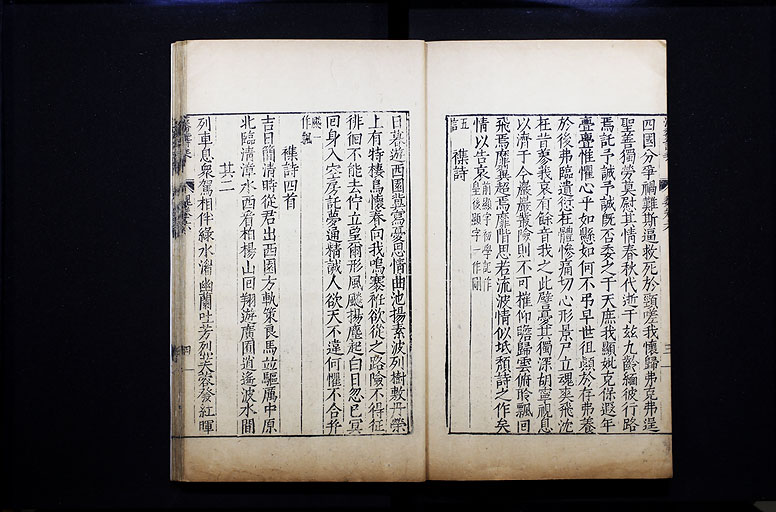 四國分爭禍難斯逼救死於頸嗟我懷歸弗克弗逞
聖善獨勞莫慰其情春秋代逝于玆九齡緬彼行路
焉託予誠予誠旣否委之于天庶我顯妣克保遐年
亹亹惟懼心乎如懸如何不弔早世徂顛於存弗養
於後弗臨遺愆在體慘痛切心形景尸立魂爽飛沈
在昔蓼莪哀有餘音我之此譬憂其獨深胡寧視息
以濟于今巖巖叢險則不可摧仰瞻歸雲俯聆飄回
飛焉靡翼超焉靡階思若流波情似坻頹詩之作矣
情以告哀
五言 襍詩
日暮遊西園冀寫憂思情曲池揚素波列樹敷丹榮
上有特棲鳥懷春向我鳴褰袵欲從之路險不得征
徘徊不能去佇立望爾形風飈揚塵起白日忽已冥
回身入空房託夢通精誠人欲天不違何懼不合幷
飈一作飄
襍詩四首
吉日簡淸時從君出西園方軌策良馬竝驅厲中原
北臨淸漳水西看柏楊山回翔遊廣囿逍遙波水間
其二
列車息衆駕相伴綠水湄幽蘭吐芳烈芙蓉發紅暉